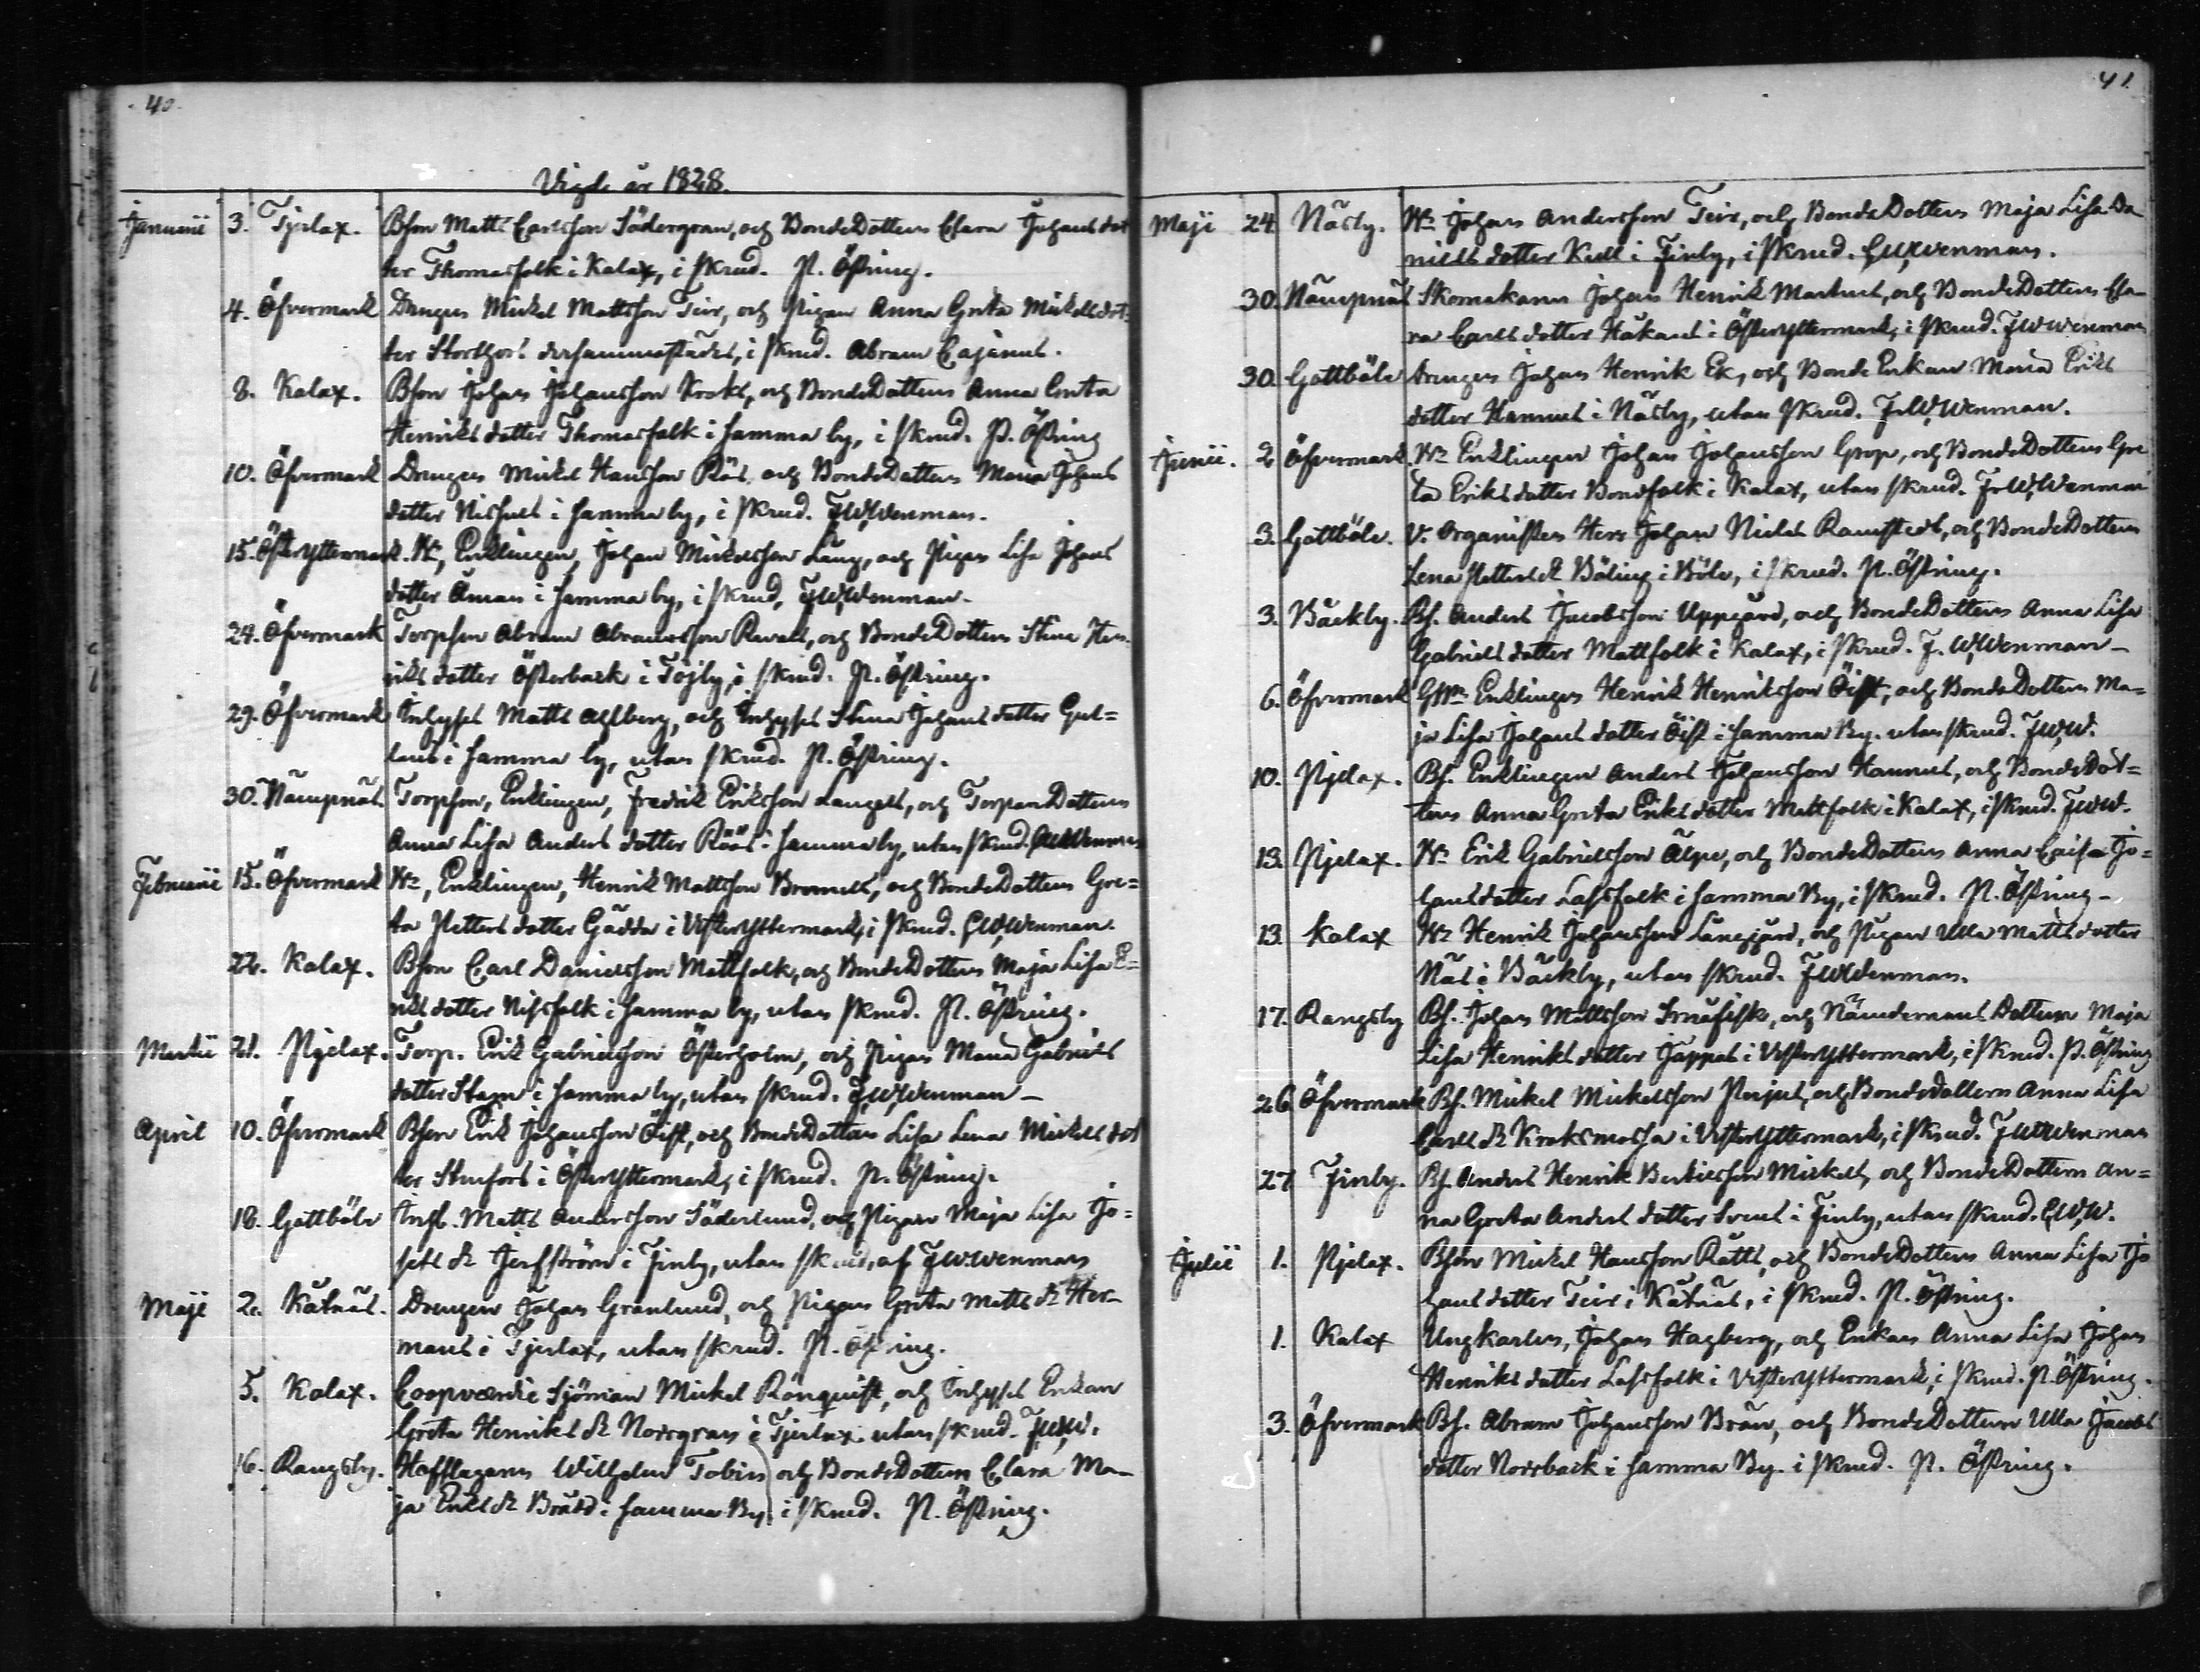 40.
Vigde år 1828.
Januarii 3. Tjerlax. Bson Matts Carlsson Södergran, och BondeDottern Clara Johans dot
ter Thomasfolk i Kalax, i skrud. P. Östring.
4. Öfvermark Drengen Mickel Mattsson Teir, och Pigan Anna Greta Mickels dot-
ter Storthors dersammastädes, i skrud. Abram Cajanus.
8. Kalax. Bson Johan Johansson Kroks, och BondeDottern Anna Greta
Henriks dotter Thomasfolk i samma by, i skrud. P. Östring
10. Öfvermark Drengen Mickel Hansson Rös, och BondeDottern Maria Johans
dotter Nishus i samma by, i skrud. J.W.Wenman.
15. Österyttermark. Nn, Enklingen, Johan Mickelsson Lång, och Pigan Lisa Johans
dotter Åman i samma by, i skrud, J.W.Wenman.
24. Öfvermark Torpson Abram Abramsson Revall, och BondeDottern Stina Hen-
riks dotter Österback i Töjby, i skrud. P. Östring.
29. Öfvermark Inhyses Matts Ahlberg, och Inhyses Stina Johans dotter Gul-
lans i samma by, utan skrud. P. Östring.
30. Nämpnäs. Torpson, Enklingen, Fredrik Eriksson Langels, och TorpareDottern
Anna Lisa Anders dotter Röös i samma by, utan skrud. J.W.Wenman
Februarii 15. Öfvermark Nn, Enklingen, Henrik Mattsson Brommels, och BondeDottern Gre-
ta Petters dotter Gädda i Vesteryttermark, i skrud. J.W.Wenman.
22. Kalax. Bson Carl Danielsson Mattfolk, och BondeDottern Maja Lisa E-
riks dotter Nissfolk i samma by, utan skrud. P. Östring.
Martii 21. Pjelax. Torp. Erik Gabrielsson Österholm, och Pigan Maria Gabriels
dotter Stagn i samma by, utan skrud. J.W.Wenman –
April 10. Öfvermark Bson Erik Johansson Öist, och BondeDottern Lisa Lena Mickels dot
ter Storfors i Österyttermark, i skrud. P. Östring.
18. Gottböle Inh. Matts Andersson Söderlund, och Pigan Maja Lisa Jo-
sefs dr Jerfström i Finby, utan skrud, af J.W.Wenman
Maji 2. Kåtnäs. Drengen Johan Granlund, och Pigan Greta Matts dr Her-
mans i Tjerlax, utan skrud. P. Östring.
5. Kalax. Coopværdie Sjöman Mickel Rönquist, och Inhyses Enkan
Greta Henriks dr Norrgran i Tjerlax utan skrud. J.W.W.
16. Rangsby. Hofslagaren Wilhelm Tobin och BondeDottern Clara Ma-
ja Eriks dr Brädd i samma By, i skrud. P. Östring.
41.
Maji 24. Näsby. Nn Johan Andersson Teir, och BondeDottern Maja Lisa Da
niels dotter Kull i Finby, i skrud. J.W.Wenman.
30. Nämpnäs Skomakaren Johan Henrik Martens, och BondeDottern Cla-
ra Carls dotter Håkans i Österyttermark, i skrud. J.W.Wenman
30. Gottböle Drengen Johan Henrik Ek, och Bonde Enkan Maria Eriks
dotter Hannus i Näsby, utan skrud. J.W.Wenman.
Junii. 2 Öfvermark. Nn Enklingen Johan Johansson Grop, och BondeDottern Gre
ta Eriks dotter Bondfolk i Kalax, utan skrud. J.W.Wenman
3. Gottböle. V. Organisten Herr Johan Niclas Ramstedt, och BondeDottern
Lena Petters dr Böling i Böle, i skrud. P. Östring.
3. Bäckby. Bs. Anders Jacobsson Uppgård, och BondeDottern Anna Lisa
Gabriels dotter Mattfolk i Kalax, i skrud. J.W.Wenman –
6. Öfvermark Enklingen Henrik Henriksson Öist, och BondeDottern Ma-
ja Lisa Johans dotter Öist i samma By. utan skrud. J.W.W.
10. Pjelax. Bs. Enklingen Anders Johansson Hannus, och BondeDot-
tern Anna Greta Eriks dotter Mattfolk i Kalax, i skrud. J.W.W.
13. Pjelax. Nn Erik Gabrielsson Ålpe, och BondeDottern Anna Caisa Jo-
hans dotter Lassfolk i samma By, i skrud. P. Östring –
13. Kalax Nn Henrik Johansson Långgård, och Pigan Ulla Matts dotter
Näs i Bäckby, utan skrud. J.W.Wenman.
17. Rangsby Bs. Johan Mattsson Småfisk, och Nämdemans Dottern Maja
Lisa Henriks dotter Jåppas i Vesteryttermark, i skrud. P. Östring
26 Öfvermark Bs. Mickel Mickelsson Perjus, och BondeDottern Anna Lisa
Carls dr Kroksmossa i Vesteryttermark, i skrud. J.W.Wenman
27 Finby. Bs. Anders Henrik Bertilsson Mickels, och BondeDottern An-
na Greta Anders dotter Svens i Finby, utan skrud. J.W.W.
Julii 1. Pjelax. Bson Mickel Hansson Rätts, och BondeDottern Anna Lisa Jo
hans dotter Teir i Kåtnäs, i skrud. P. Östring.
1. Kalax Ungkarlen, Johan Hagberg, och Enkan Anna Lisa Johan
Henriks dotter Lassfolk i Vesteryttermark, i skrud. P. Östring.
3. Öfvermark Bs. Abram Johansson Brän, och BondeDottern Ulla Jacobs
dotter Norrback i samma By. i skrud. P. Östring.